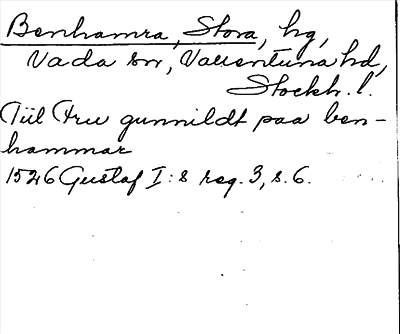 Benhamra, Stora, hg,
Vada sn, Vallentuna hd,
Stockh. l.
Tiil Fru gunnildt paa ben-
hammar
1526 Gustaf I:s reg. 3, s. 6.